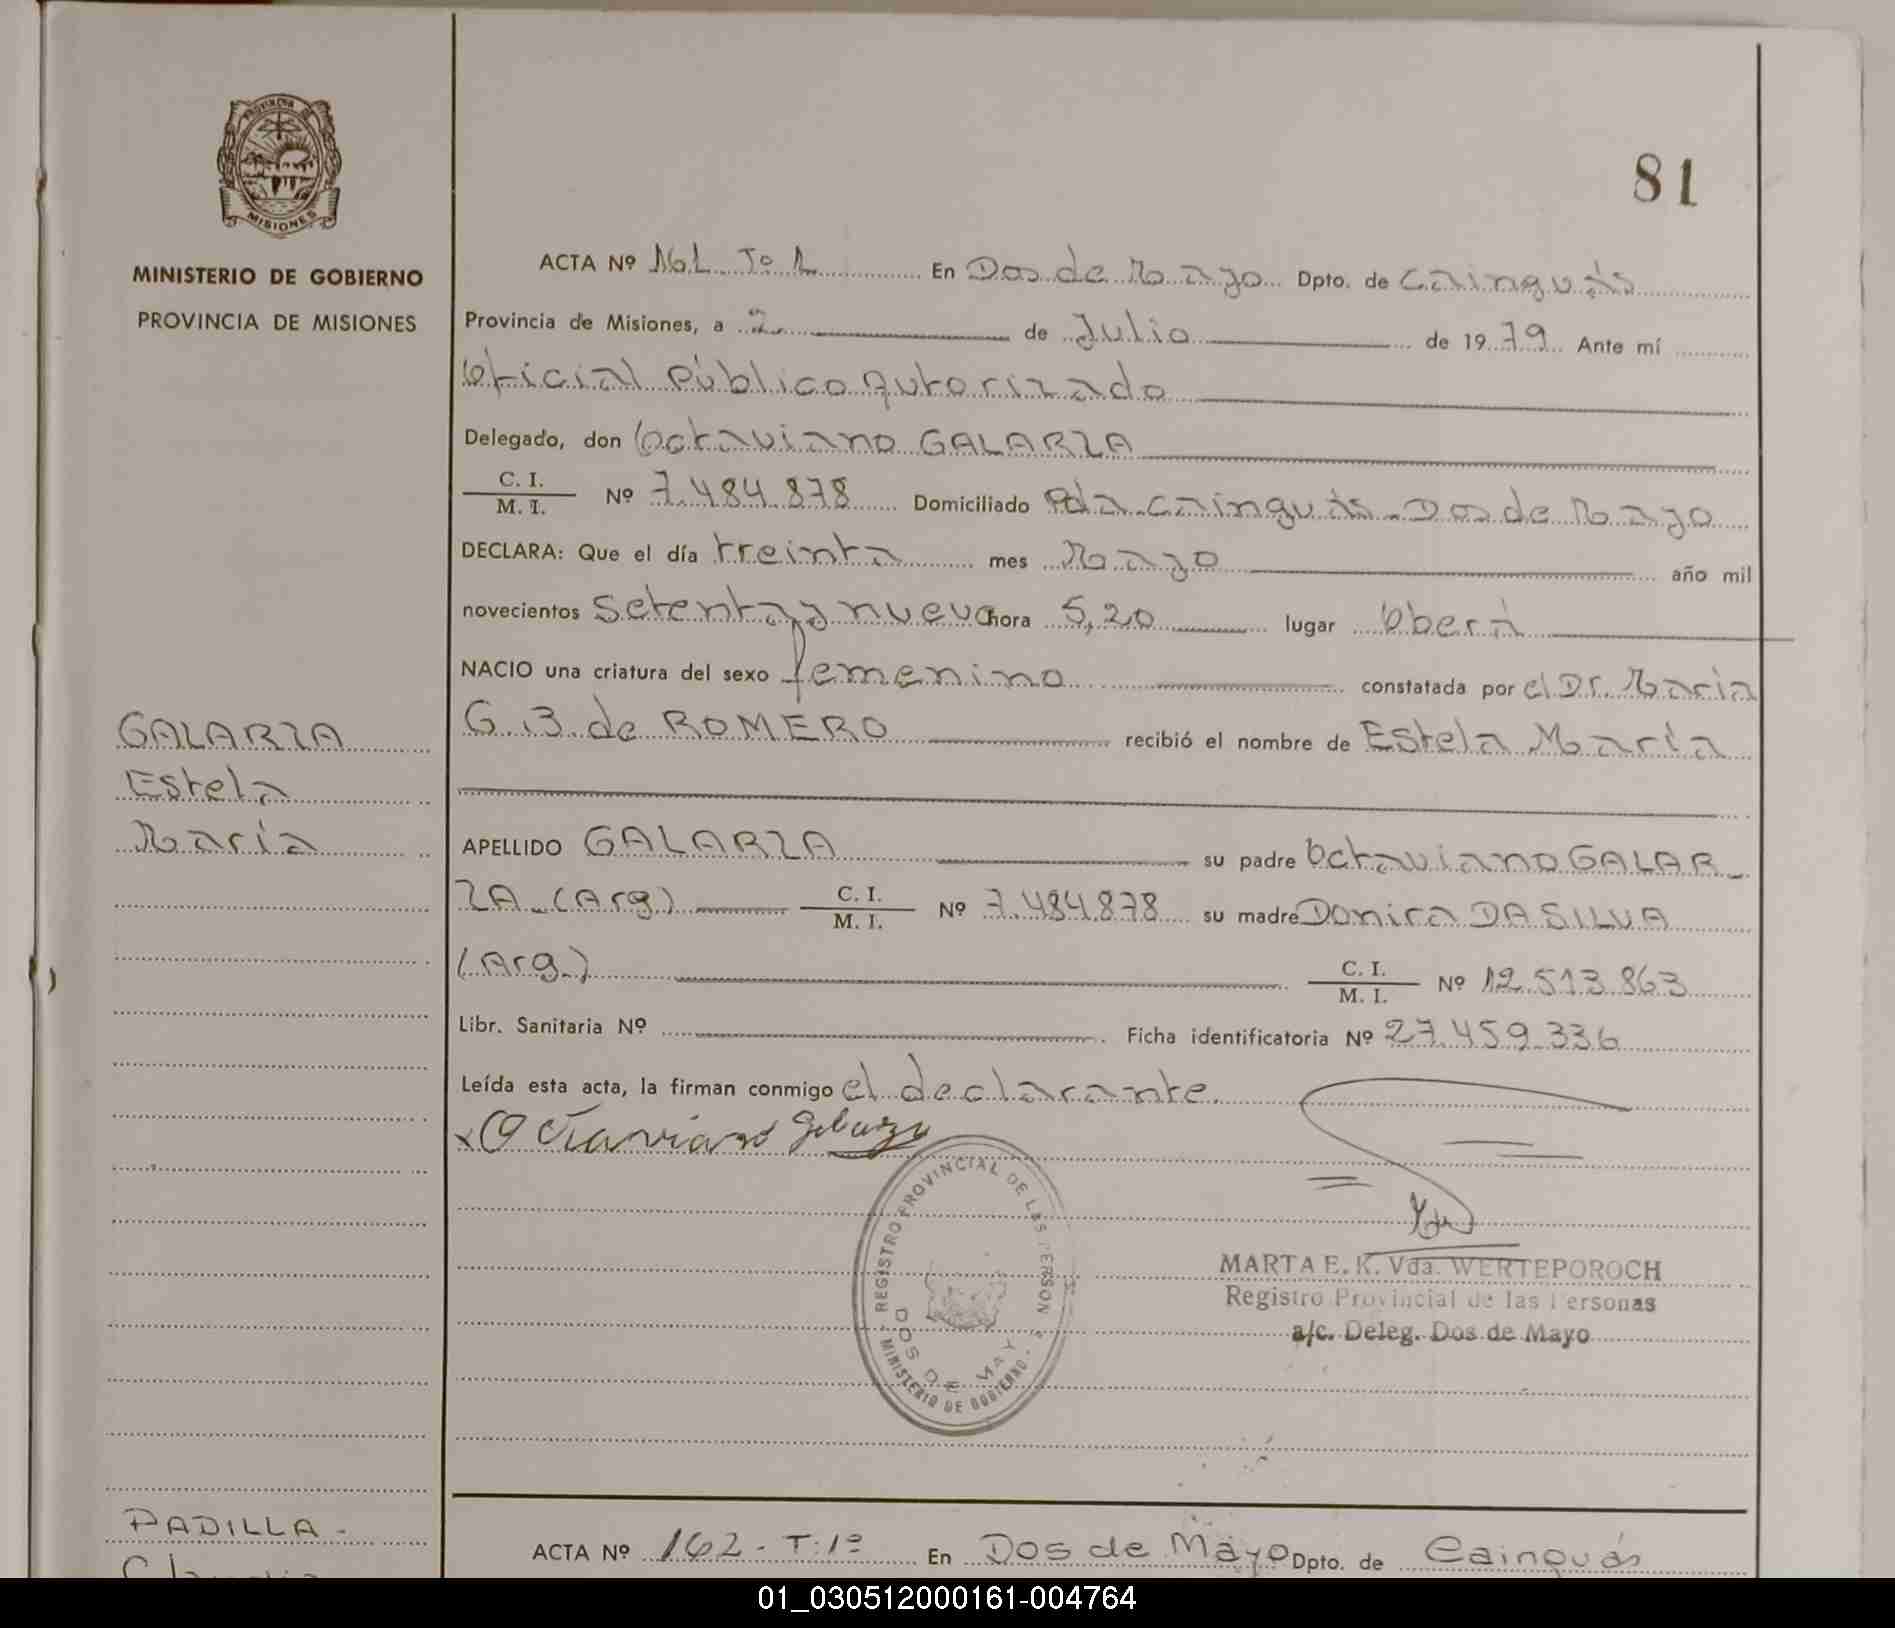 PROVINCIA DE
MISIONES
MINISTERIO DE GOBIERNO
PROVINCIA DE MISIONES
81
ACTA Nº 161 Tº 1 En Dos de Mayo Dpto. de Cainguás
Provincia de Misiones, a 2 de Julio de 1979 Ante mí
Oficial Público Autorizado
Delegado, don Octaviano GALARZA
C. I.
M. I. Nº 7.484.878 Domiciliado Pda. Cainguás - Dos de Mayo
DECLARA: Que el día treinta mes Mayo año mil
novecientos setenta y nueve hora 5,20 lugar Oberá
NACIO una criatura del sexo femenino constatada por el Dr. María
G. B. de ROMERO recibió el nombre de Estela María
GALARZA
Estela
María
APELLIDO GALARZA su padre Octaviano GALAR-
ZA (Arg) C. I.
M. I. Nº 7.484.878 su madre Donira DA SILVA
(Arg.) C. I.
M. I. Nº 12.513.863
Libr. Sanitaria Nº Ficha identificatoria Nº 27.459.336
Leída esta acta, la firman conmigo el declarante.
x Octaviano Galarza
REGISTRO PROVINCIAL DE LAS PERSON
DOS DE MAY
MINISTERIO DE GOBIERNO
MARTA E. K. Vda. WERTEPOROCH
Registro Provincial de las Personas
a/c. Deleg. Dos de Mayo
PADILLA -
ACTA Nº 162 - T: 1º En Dos de Mayo Dpto. de Cainguás
01_030512000161-004764